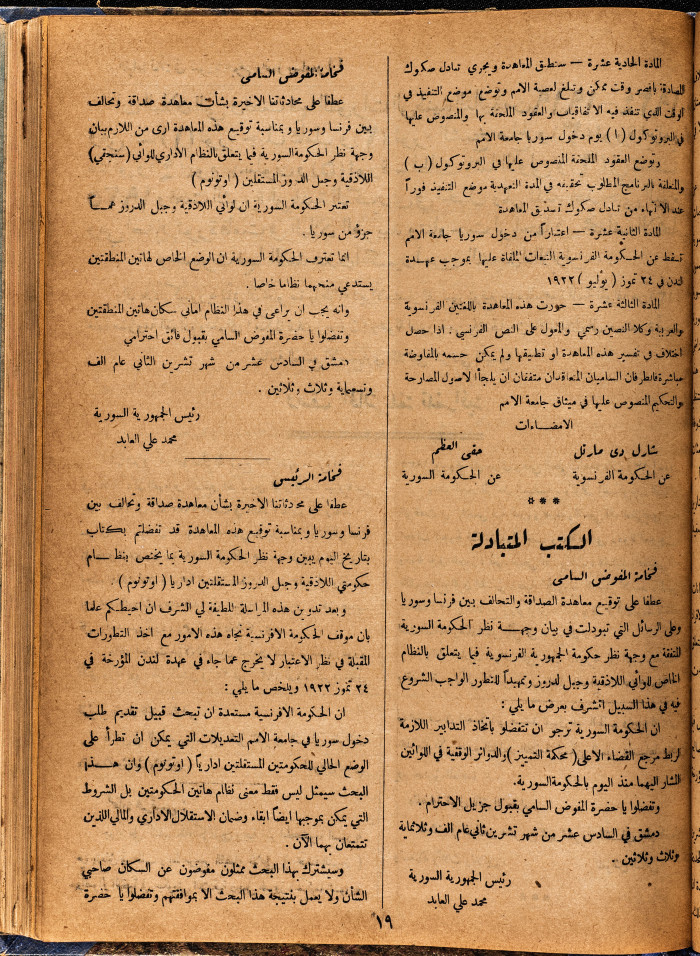 المادة الحادية عشرة — ستطبق المعاهدة ويجري تبادل صكوك
المصادقة باقصر وقت ممكن وتبلغ لعصبة الامم وتوضع موضع التنفيذ في
الوقت الذي تنفذ فيه الاتفاقيات والعقود الملحقة بها والمنصوص عليها
في البروتوكول ( ا ) يوم دخول سوريا جامعة الامم
وتوضع العقود الملحقة المنصوص عليها في البروتوكول ( ب )
والمتعلقة بالبرنامج المطلوب تحقيقه في المدة التمهيدية موضع التنفيذ فوراً
عند الانتهاء من تبادل صكوك تصديق المعاهدة
المادة الثانية عشرة — اعتباراً من دخول سوريا جامعة الامم
تسقط عن الحكومة الفرنسوية التبعات الملقاة عليها بموجب عهدة
لندن في ٢٤ تموز ( يوليو ) ١٩٢٢
المادة الثالثة عشرة — حررت هذه المعاهدة باللغتين الفرنسوية
والعربية وكلا النصين رسمي والمعول على النص الفرنسي . اذا حصل
اختلاف في تفسير هذه المعاهدة او تطبيقها ولم يمكن حسمه بالمفاوضة
مباشرة فالطرفان الساميان المتعاقدان متفقان ان يلجأا لاصول المصالحة
والتحكيم المنصوص عليها في ميثاق جامعة الامم
الامضاءات
شارل دى مارتل حقى العظم
عن الحكومة الفرنسوية عن الحكومة السورية
***
الكتب المتبادلة
فخامة المفوض السامى
عطفا على توقيع معاهدة الصداقة والتحالف بين فرنسا وسوريا
وعلى الرسائل التي تبودلت في بيان وجهة نظر الحكومة السورية
المتفقة مع وجهة نظر حكومة الجمهورية الفرنسوية فيما يتعلق بالنظام
الخاص للوائي اللاذقية وجبل لدروز وتمهيداً للتطور الواجب الشروع
فيه في هذا السبيل اتشرف بعرض ما يلي :
ان الحكومة السورية ترجو ان تتفضلوا باتخاذ التدابير اللازمة
لربط مرجع القضاء الاعلى ( محكمة التمييز ) والدوائر الوقفية في اللوائين
المشار اليهما منذ اليوم بالحكومة السورية.
وتفضلوا يا حضرة المفوض السامي بقبول جزيل الاحترام .
دمشق في السادس عشر من شهر تشرين ثاني عام الف وتسعماية
وثلاث وثلاثين .
رئيس الجمهورية السورية
محمد علي العابد
فخامة المفوض السامى
عطفا على محادثاتنا الاخيرة بشأن معاهدة صداقة وتحالف
بين فرنسا وسوريا وبمناسبة توقيع هذه المعاهدة ارى من اللازم بيان
وجهة نظر الحكومة السورية فيما يتعلق بالنظام الاداري للوائي ( سنجقي )
اللاذقية وجبل الدروز المستقلين ( اوتونوم )
تعتبر الحكومة السورية ان لوائي اللاذقية وجبل الدروز هما
جزؤ من سوريا .
انما تعترف الحكومة السورية ان الوضع الخاص لهاتين المنطقتين
يستدعي منحهما نظاما خاصا .
وانه يجب ان يراعى في هذا النظام اماني سكان هاتين المنطقتين
وتفضلوا يا حضرة المفوض السامي بقبول فائق احترامي
دمشق في السادس عشر من شهر تشرين الثاني عام الف
وتسعماية وثلاث وثلاثين .
رئيس الجمهورية السورية
محمد علي العابد
فخامة الرئيس
عطفا على محادثاتنا الاخيرة بشأن معاهدة صداقة وتحالف بين
فرنسا وسوريا وبمناسبة توقيع هذه المعاهدة قد تفضلتم بكتاب
بتاريخ اليوم يبين وجهة نظر الحكومة السورية بما يختص بنظام
حكومتي اللاذقية وجبل الدروز المستقلتين اداريا ( اوتونوم ) .
وبعد تدوين هذه المراسلة اللطيفة لي الشرف ان احيطكم علما
بان موقف الحكومة الافرنسية تجاه هذه الامور مع اخذ التطورات
المقبلة في نظر الاعتبار لا يخرج عما جاء في عهدة لندن المؤرخة في
٢٤ تموز ١٩٢٢ ويلخص ما يلي :
ان الحكومة الافرنسية مستعدة ان تبحث قبيل تقديم طلب
دخول سوريا في جامعة الامم التعديلات التي يمكن ان تطرأ على
الوضع الحالي للحكومتين المستقلتين اداريا ( اوتونوم ) وان هذا
البحث سيمثل ليس فقط معنى نظام هاتين الحكومتين بل الشروط
التي يمكن بموجبها ايضاً ابقاء وضمان الاستقلال الاداري والمالي اللذين
تتمتعان بهما الآن .
وسيشترك بهذا البحث ممثلون مفوضون عن السكان صاحبي
الشأن ولا يعمل بنتيجة هذا البحث الا بموافقتهم وتفضلوا يا حضرة
١٩